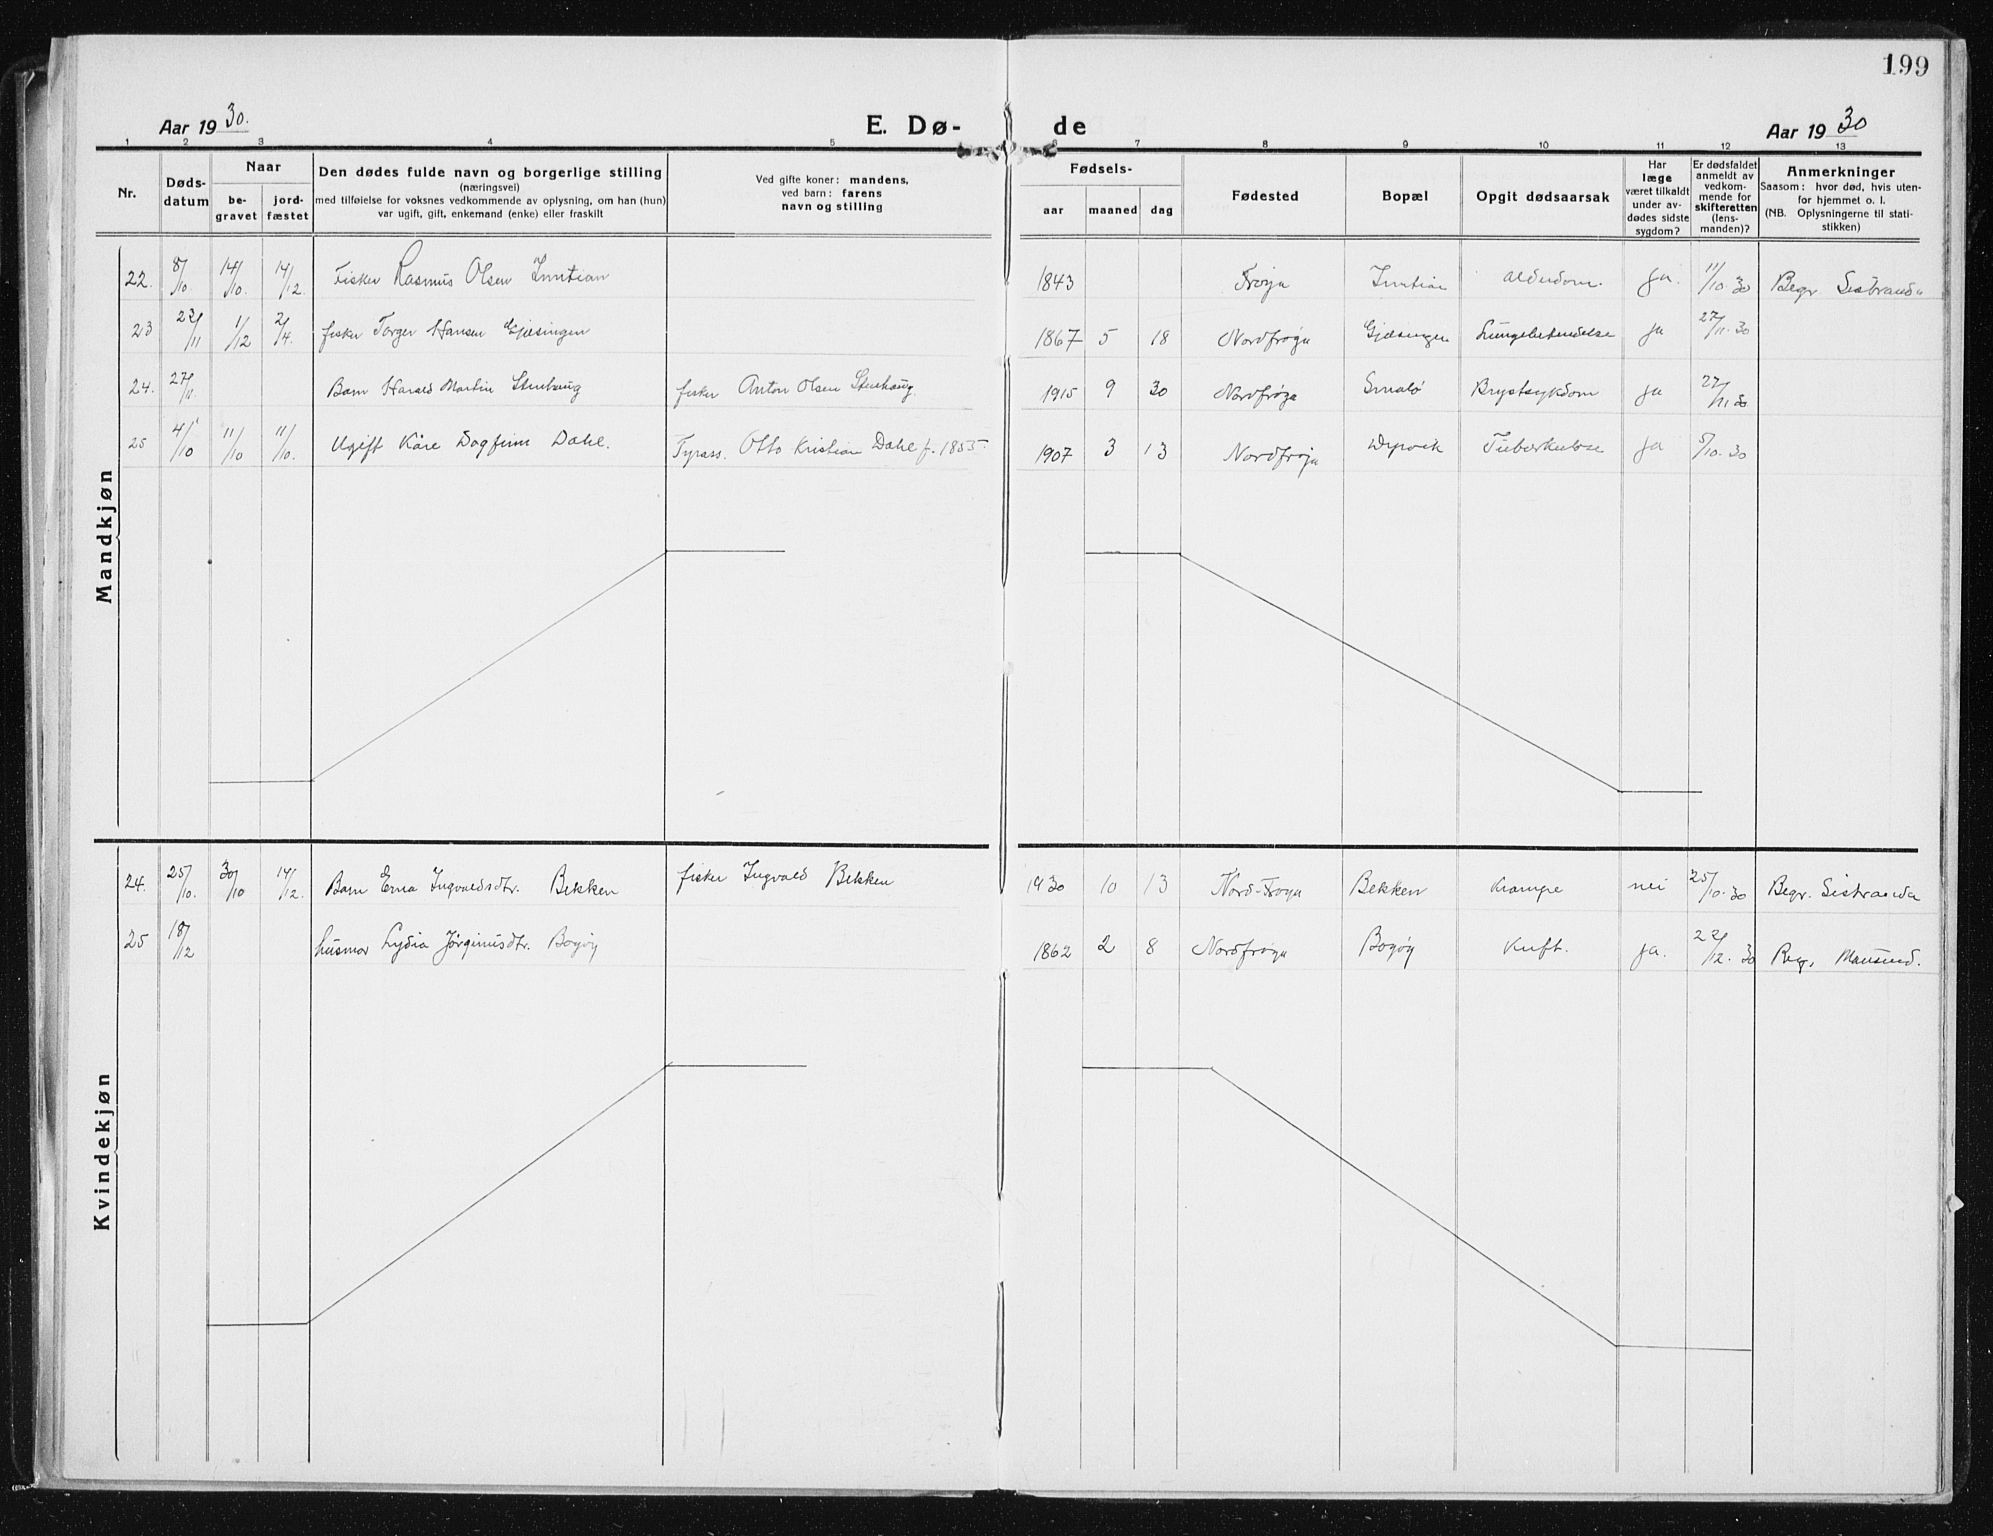 199
Aar 1930. E. Dø- de Aar 1930
1 2 3 4 5 6 7 8 9 10 11 12 13
Nr. Døds-datum Naar begravet jordfæstet Den dødes fulde navn og borgerlige stilling (næringsvei) med tilføielse for voksnes vedkommende av oplysning, om han (hun) var ugift, gift, enkemand (enke) eller fraskilt Ved gifte koner: mandens, ved barn: farens navn og stilling Fødsels- aar maaned dag Fødested Bopæl Opgit dødsaarsak Har læge været tilkaldt under avdødes sidste sygdom? Er dødsfaldet anmeldt av vedkommende for skifteretten (lensmanden)? Anmerkninger Saasom: hvor død, hvis utenfor hjemmet o. l. (NB. Oplysningerne til statistikken)
Mandkjøn
22. 8/10 14/10. 14/12. Fisker Rasmus Olsen Inntian 1843 Frøya Inntian Alderdom. ja. 11/10 30 Begr Sistranda
23 22/11 1/12 2/4. fisker Torger Hansen Gjæsingen 1867 5 18 Nordfrøya Gjæsingen Lungebetendelse ja 27/11. 30
24. 27/11. Barn Harald Martin Stenhaug fisker Anton Olsen Stenhaug. 1915 9 30 Nordfrøya Brystsykdom ja 27/11 30
25 4/10 11/10 11/10. Ugift Kåre Dagfinn Dahl. Otto Kristian Dahl f. 1855 1907 3 13 Nordfrøja Dyrvik Tuberkulose ja 5/10. 30
Kvindekjøn
24. 25/10. 30/10 14/12. Barn Erna Ingvaldsdtr. Bekken fisker Ingvald Bekken 1930 10 13 Nord-Frøya Bekken Krampe nei 25/10. 30 Begr. Sistranda
25 18/12 husmor Lydia Jørginusdtr. Bogøy 1862 2 8 Nordfrøya Bogøy Kreft. ja. 22/12. 30 Mausund.